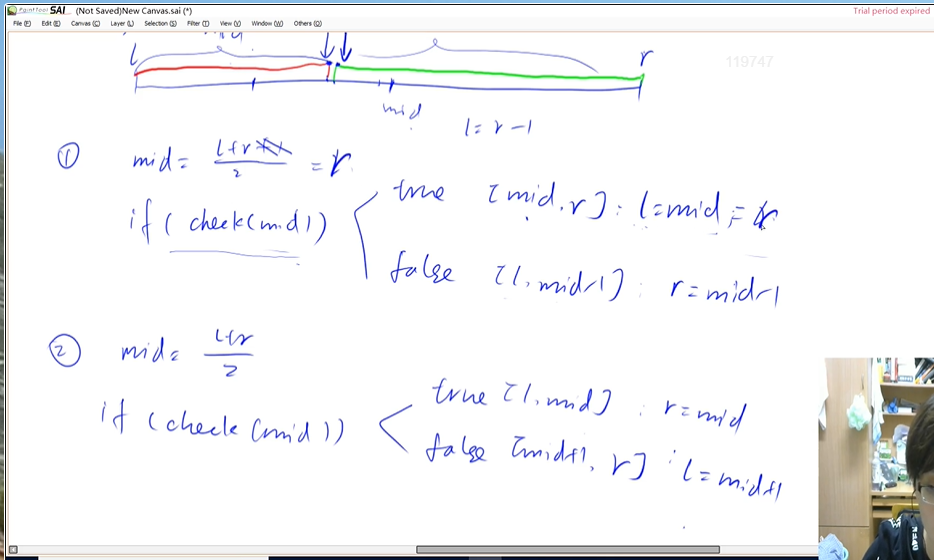 PaintTool SAI (Not Saved)New Canvas.sai (*)
Trial period expired
File (F) Edit (E) Canvas (C) Layer (L) Selection (S) Filter (T) View (V) Window (W) Others (O)
l r
119747
mid
l = r - 1
① mid = l+r / 2 = r
if ( check(mid) )
true [mid, r] : l=mid = r
false [l, mid-1] : r=mid-1
② mid = l+r / 2
if (check(mid))
true [l, mid] : r=mid
false [mid+1, r] : l=mid+1